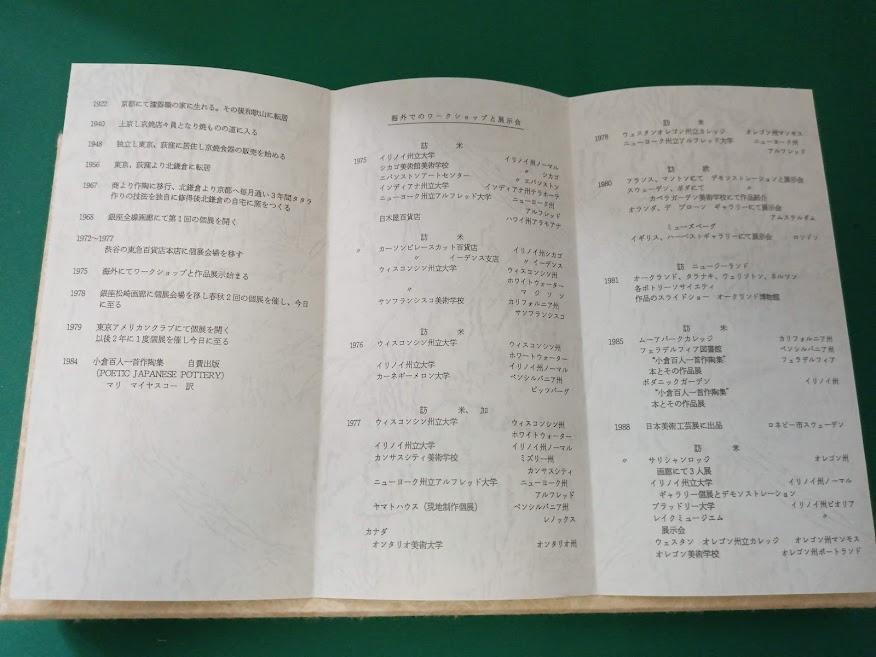 1922 京都にて漆器職の家に生れる。その後和歌山に転居
1940 上京し京焼店々員となり焼ものの道に入る
1948 独立し東京、荻窪に居住し京焼食器の販売を始める
1956 東京、荻窪より北鎌倉に転居
1967 商より作陶に移行、北鎌倉より京都へ毎月通い3年間タタラ
作りの技法を独自に修得後北鎌倉の自宅に窯をつくる
1968 銀座全線画廊にて第1回の個展を開く
1972〜1977
渋谷の東急百貨店本店に個展会場を移す
1975 海外にてワークショップと作品展示始まる
1978 銀座松崎画廊に個展会場を移し春秋2回の個展を催し、今日
に至る
1979 東京アメリカンクラブにて個展を開く
以後2年に1度個展を催し今日に至る
1984 小倉百人一首作陶集 自費出版
(POETIC JAPANESE POTTERY)
マリ マイヤスコー 訳
海外でのワークショップと展示会
訪 米
1975 イリノイ州立大学 イリノイ州ノーマル
シカゴ美術館美術学校 〃 シカゴ
エバンストンアートセンター 〃 エバンストン
インディアナ州立大学 インディアナ州テラホーテ
ニューヨーク州立アルフレッド大学 ニューヨーク州
アルフレッド
白木屋百貨店 ハワイ州アラモアナ
訪 米
〃 カーソンピレースカット百貨店 イリノイ州シカゴ
〃 イーデンス支店 〃 イーデンス
ウィスコンシン州立大学 ウィスコンシン州
ホワイトウォーター
〃 マジソン
サンフランシスコ美術学校 カリフォルニア州
サンフランシスコ
訪 米
1976 ウィスコンシン州立大学 ウィスコンシン州
ホワートウォーター
イリノイ州立大学 イリノイ州ノーマル
カーネギーメロン大学 ペンシルバニア州
ピッツバーグ
訪 米、加
1977 ウィスコンシン州立大学 ウィスコンシン州
ホワイトウォーター
イリノイ州立大学 イリノイ州ノーマル
カンサスシティ美術学校 ミズリー州
カンサスシティ
ニューヨーク州立アルフレッド大学 ニューヨーク州
アルフレッド
ヤマトハウス(現地制作個展) ペンシルバニア州
レノックス
カナダ
オンタリオ美術大学 オンタリオ州
訪 米
1978 ウェスタンオレゴン州立カレッジ オレゴン州マンモス
ニューヨーク州立アルフレッド大学 ニューヨーク州
アルフレッド
訪 欧
1980 フランス、マントンにて デモンストレーションと展示会
スウェーデン、ボダにて 〃
カペラガーデン美術学校にて作品紹介
オランダ、デ ブローン ギャラリーにて展示会
アムステルダム
ミューズベーグ
イギリス、ハーベストギャラリーにて展示会 ロンドン
訪 ニュージーランド
1981 オークランド、タラナキ、ウェリントン、ネルソン
各ポトリーソサイエティ
作品のスライドショー オークランド博物館
訪 米
1985 ムーアパークカレッジ カリフォルニア州
フェラデルフィア図書館 ペンシルバニア州
“小倉百人一首作陶集” フェラデルフィア
本とその作品展
ボダニックガーデン イリノイ州
“小倉百人一首作陶集”
本とその作品展
1988 日本美術工芸展に出品 ロネビー市スウェーデン
訪 米
〃 サリシャンロッジ オレゴン州
画廊にて3人展
イリノイ州立大学 イリノイ州ノーマル
ギャラリー個展とデモンストレーション
ブラッドリー大学 イリノイ州ピオリア
レイクミュージエム 〃
展示会
ウェスタン オレゴン州立カレッジ オレゴン州マンモス
オレゴン美術学校 オレゴン州ポートランド